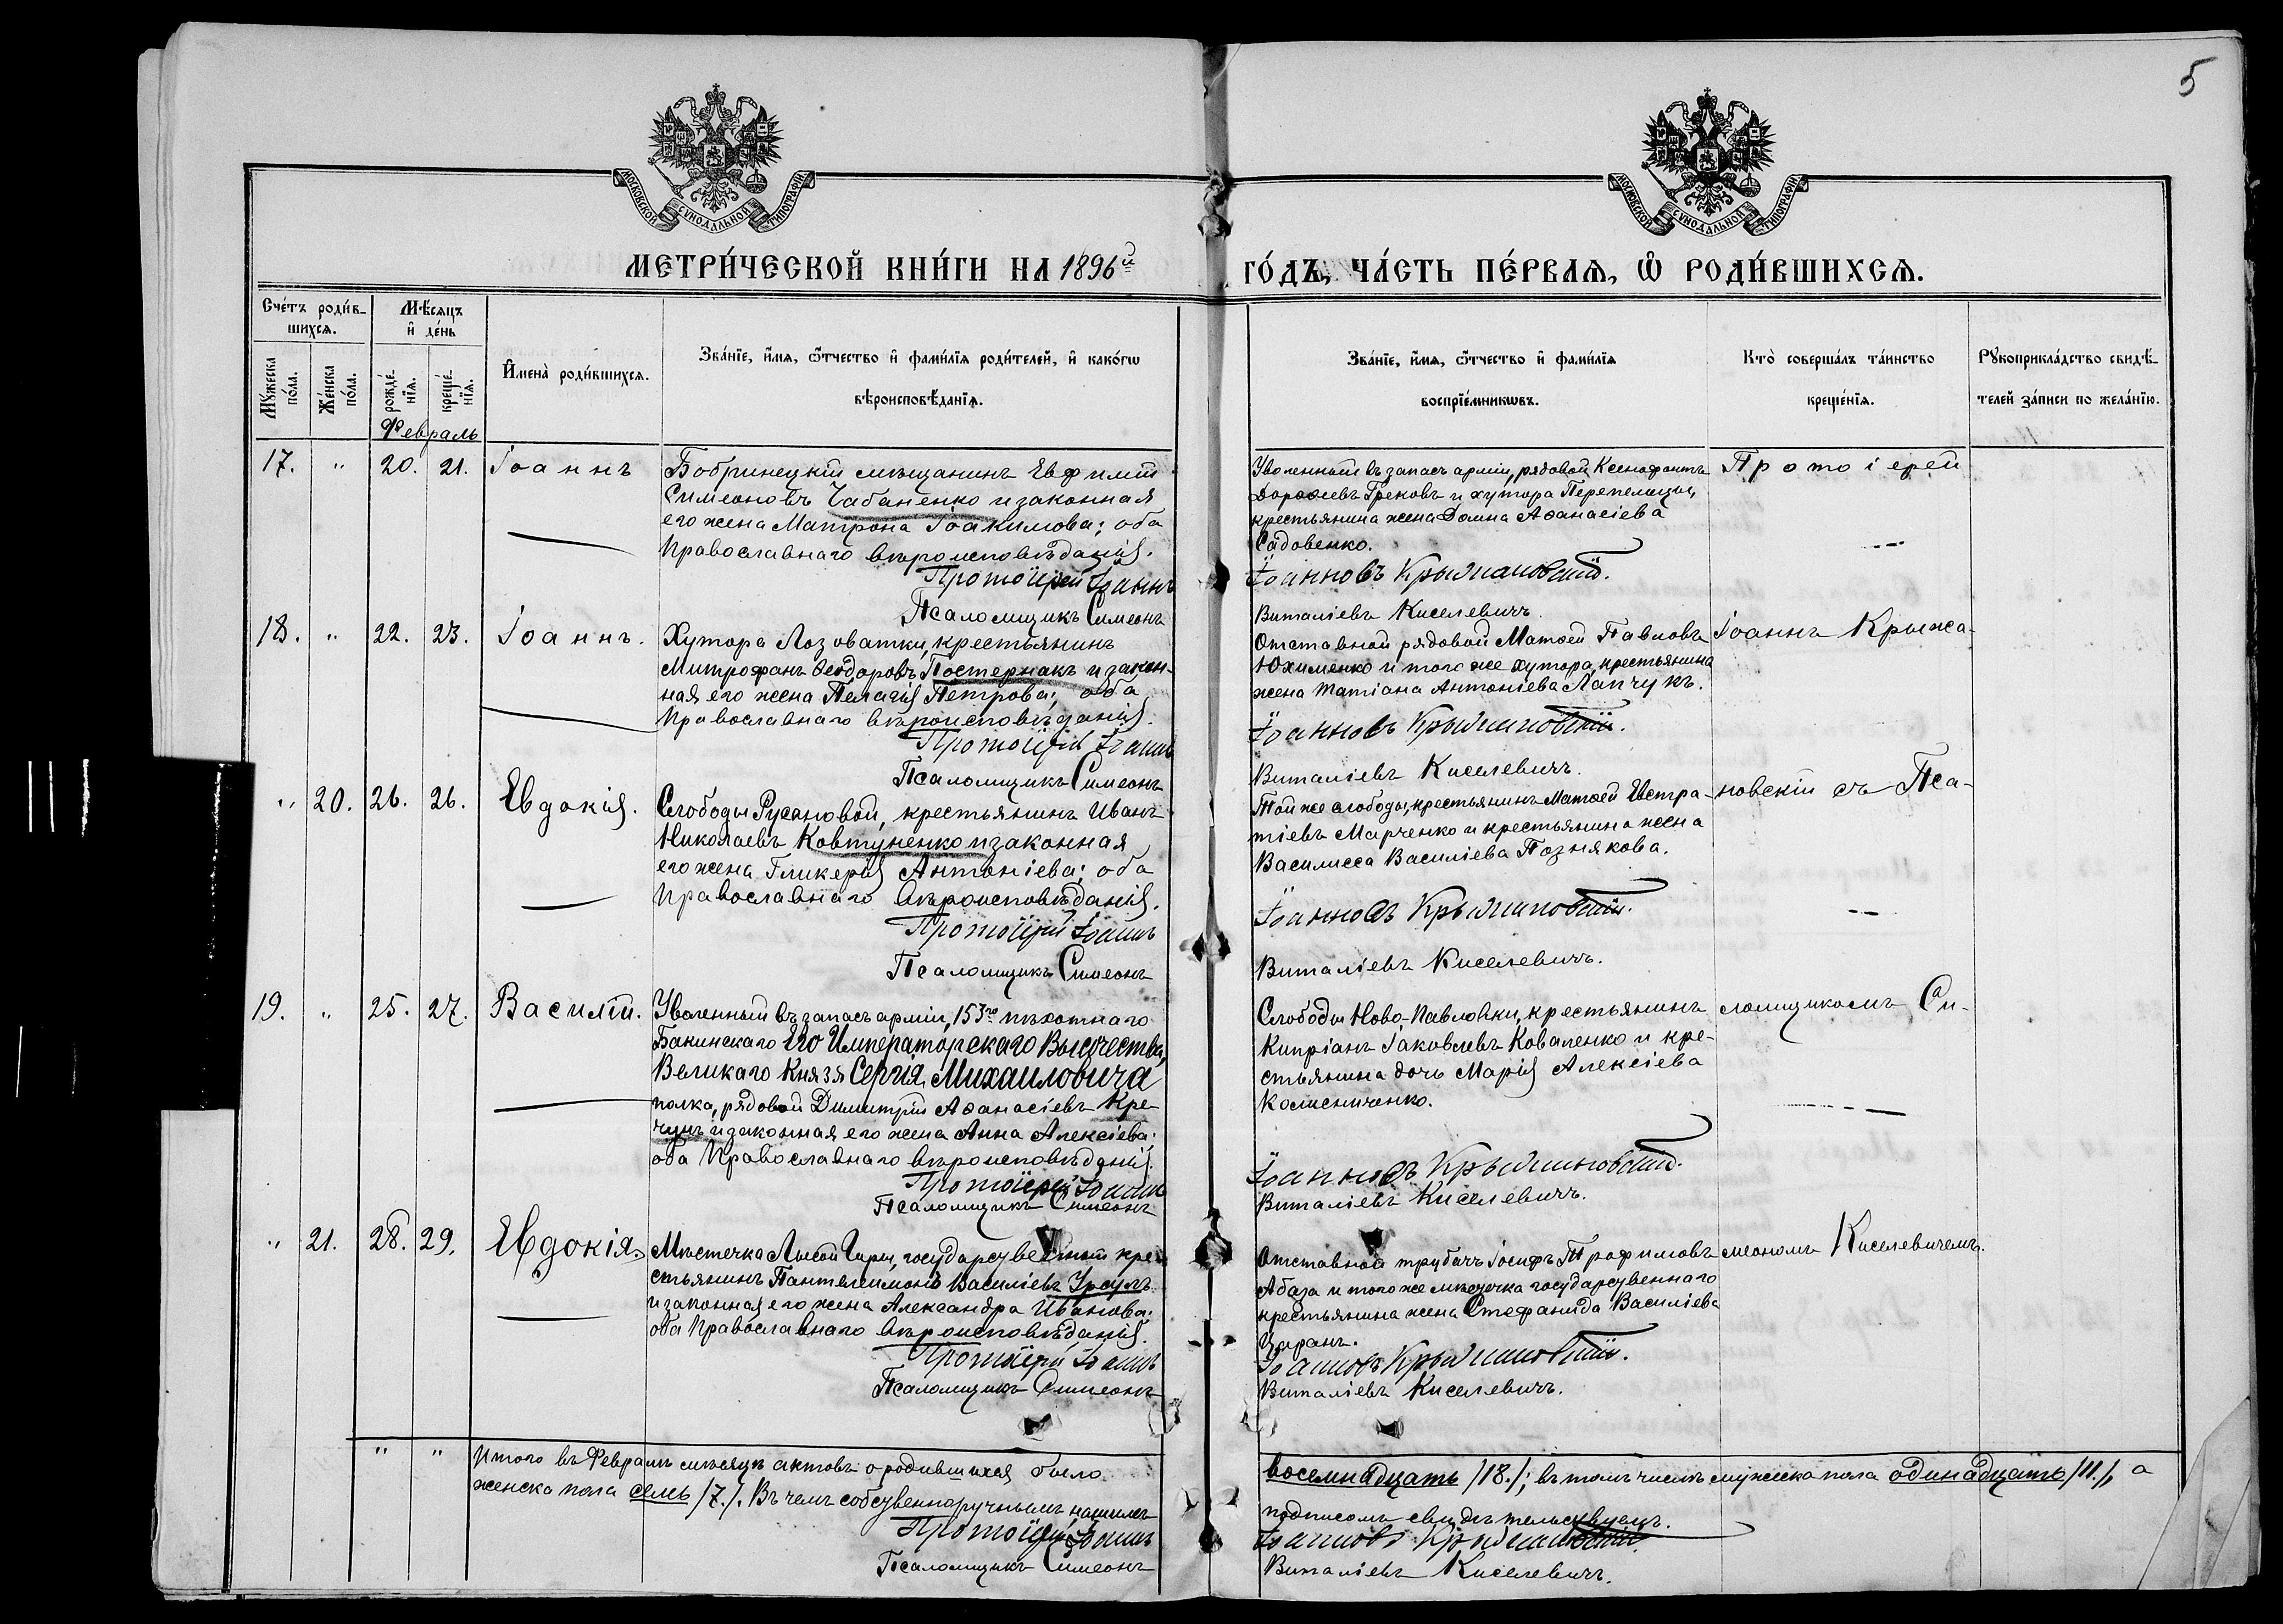 5
МОСКОВСКОЙ СУНОДАЛЬНОЙ ТИПОГРАФІИ
МОСКОВСКОЙ СУНОДАЛЬНОЙ ТИПОГРАФІИ
МЕТРИ́ЧЕСКОЙ КНИ́ГИ НА 1896й ГО́ДЪ, ЧА́СТЬ ПЕ́РВАЯ, Ѡ РОДИ́ВШИХСЯ.
Сче́тъ роди́в-
шихся.
Му́жеска по́ла.
Же́нска по́ла.
Мѣ́сяцъ
и҆ де́нь
рожде́-
нїя.
креще́-
нїя.
Февраль
И҆мена̀ роди́вшихся.
Зва́нїе, и҆́мя, ѻ҆́тчество и҆ фами́лїя роди́телей, и҆ како́гѡ
вѣроисповѣ́данїя.
Зва́нїе, и҆́мя, ѻ҆́тчество и҆ фами́лїя
воспрїе́мникѡвъ.
Кто̀ соверша́лъ та́инство
креще́нїя.
Рꙋкоприкла́дство свидѣ́-
телей за́писи по жела́нїю.
17. " 20. 21. Іоаннъ
Бобринецкій мѣщанинъ Евфимій
Симеоновъ Чабаненко и законная
его жена Матрона Іоакимова; оба
Православнаго вѣроисповѣданія.
Протоіерей Іоаннъ
Псаломщикъ Симеонъ
Уволенный въ запасъ арміи, рядовой Ксенофонтъ
Дороѳеевъ Грековъ и хутора Перепелицы,
крестьянина жена Домна Аѳанасіева
Садовенко.
Іоанновъ Крыжановскій.
Виталіевъ Киселевичъ.
Протоіерей
18. " 22. 23. Іоаннъ.
Хутора Лозоватки, крестьянинъ
Митрофанъ Ѳеодоровъ Постернакъ и закон-
ная его жена Пелагія Петрова; оба
Православнаго вѣроисповѣданія.
Протоіерей Іоаннъ
Псаломщикъ Симеонъ
Отставной рядовой Матѳей Павловъ
Юхименко и того же хутора, крестьянина
жена Татіана Антоніева Лапчукъ.
Іоанновъ Крыжановскій.
Виталіевъ Киселевичъ.
Іоаннъ Крыжа-
" 20. 26. 26. Евдокія.
Слободы Русановой, крестьянинъ Иванъ
Николаевъ Ковтуненко и законная
его жена Гликерія Антоніева; оба
Православнаго вѣроисповѣданія.
Протоіерей Іоаннъ
Псаломщикъ Симеонъ
Той же слободы, крестьянинъ Матѳей Евстра-
тіевъ Марченко и крестьянина жена
Василисса Василіева Позникова.
Іоанновъ Крыжановскій.
Виталіевъ Киселевичъ.
новскій съ Пса-
19. " 25. 27. Василій.
Уволенный въ запасъ арміи, 153го пѣхотнаго
Бакинскаго Его Императорскаго Высочества,
Великаго Князя Сергія Михаиловича
полка, рядовой Димитрій Аѳанасіевъ Кре-
чунъ и законная его жена Анна Алексіева;
оба Православнаго вѣроисповѣданія.
Протоіерей Іоаннъ
Псаломщикъ Симеонъ
Слободы Ново-Павловки, крестьянинъ
Кипріанъ Іаковлевъ Коваленко и кре-
стьянина дочь Марія Алексіева
Колисниченко.
Іоанновъ Крыжановскій.
Виталіевъ Киселевичъ.
ломщикомъ Си-
" 21. 28. 29. Евдокія.
Мѣстечка Лысой Горы, государственный кре-
стьянинъ Пантелеимонъ Василіевъ Урсулъ
и законная его жена Александра Иванова;
оба Православнаго вѣроисповѣданія.
Протоіерей Іоаннъ
Псаломщикъ Симеонъ
Отставной трубачъ Іосифъ Трофимовъ
Абаза и того же мѣстечка государственнаго
крестьянина жена Стефанида Василіева
Царанъ.
Іоанновъ Крыжановскій.
Виталіевъ Киселевичъ.
меономъ Киселевичемъ.
" " Итого въ Февралѣ мѣсяцѣ актовъ о родившихся было восемнадцать /18./; въ томъ числѣ мужеска пола одинадцать /11./, а
женска пола семь /7./. Въ чемъ собственноручнымъ нашимъ подписомъ свидѣтельствуемъ.
Протоіерей Іоаннъ Іоанновъ Крыжановскій.
Псаломщикъ Симеонъ Виталіевъ Киселевичъ.